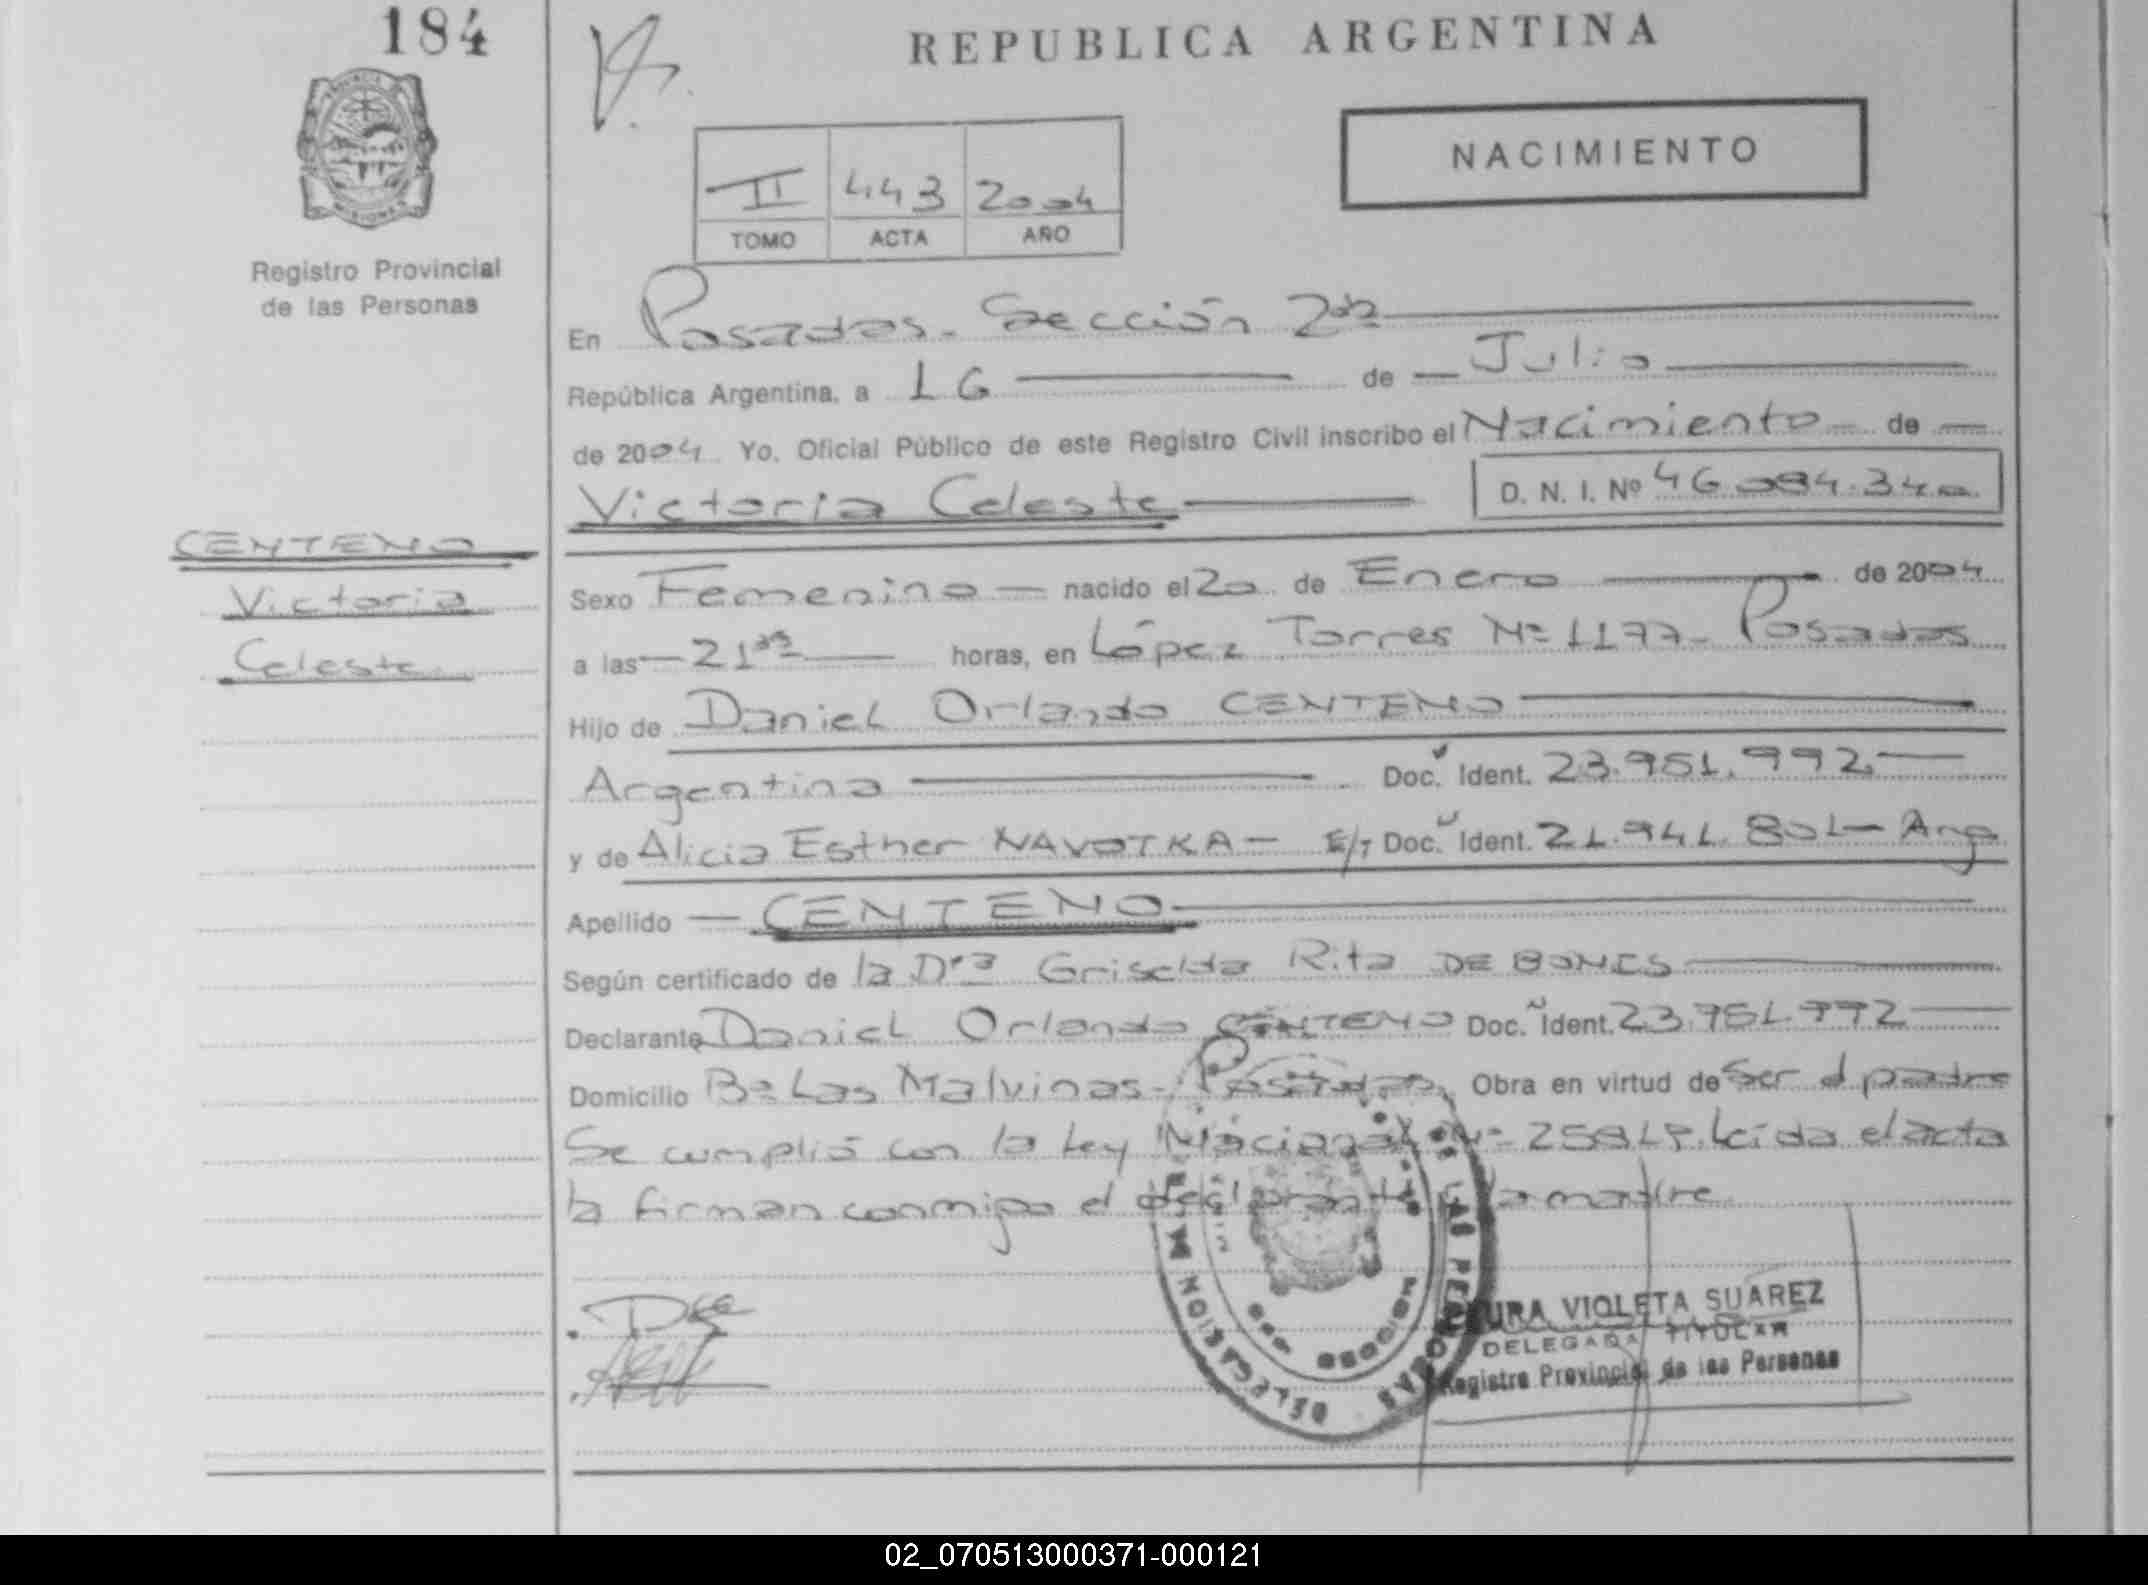 184
REPUBLICA ARGENTINA
NACIMIENTO
II 443 2004
TOMO ACTA AÑO
Registro Provincial
de las Personas
En Posadas - Sección 2da
República Argentina, a 16 de Julio
de 2004 Yo, Oficial Público de este Registro Civil inscribo el Nacimiento de
Victoria Celeste D. N. I. Nº 46.084.340
CENTENO
Victoria
Celeste
Sexo Femenino nacido el 20 de Enero de 2004
a las 21 horas, en López Torres Nº 1177 - Posadas
Hijo de Daniel Orlando CENTENO
Argentina Doc. Ident. 23.951.992
y de Alicia Esther NAVOTKA - E/T Doc. Ident. 21.941.801 - Arg
Apellido CENTENO
Según certificado de la Dra Griselda Rita DE BONIS
Declarante Daniel Orlando CENTENO Doc. Ident. 23.951.992
Domicilio Bº Las Malvinas - Posadas Obra en virtud de Ser el padre
Se cumplió con la Ley Nacional Nº Leída el acta
la firman conmigo el declarante la madre
VIOLETA SUAREZ
DELEGADA TITULAR
Registro Provincial de las Personas
02_070513000371-000121